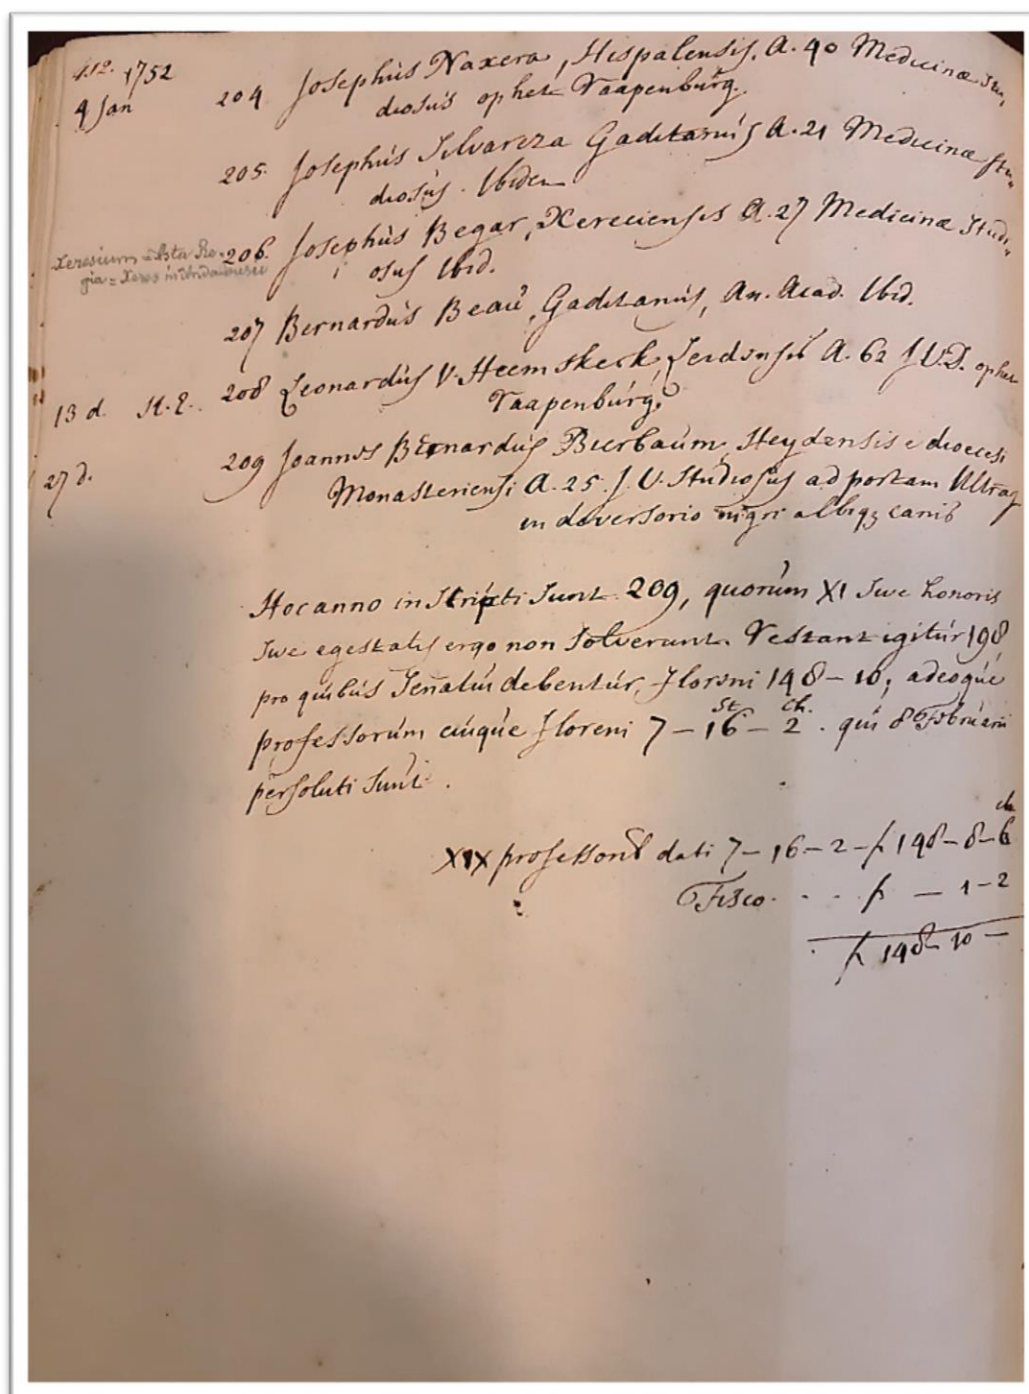 412. 1752
4 Jan 204 Josephus Naxera, Hispalensis. A. 40 Medicinæ Stu,
diosus op het Raapenburg.
205. Josephus Silvarcza Gaditanus A. 21 Medicinæ Stu,
diosus. Ibidem
206. Josephus Begar, Xereciensis A. 27 Medicinæ Studi,
osus Ibid.
Xeresium = Asta Re-
gia = Xeres in Andalousie
207 Bernardus Beau, Gaditanus, An. Acad. Ibid.
13 d. H. E. 208 Leonardus V. Heemskerk, Leidensis A. 62 J.U.D. op het
Raapenburg.
27 d. 209 Joannes Bernardus Buerbaum, Heydensis e dioecesi
Monasteriensi A. 25. J. U. Studiosus ad portam Ultraj
in diversorio nigri albiqz canis
Hoc anno inscripti sunt 209, quorum XI sive honoris
sive egestatis ergo non solverunt. Restant igitur 198
pro quibus Senatui debentur, floreni 148 – 10; adeoque
professorum cuique floreni 7 – 16 – 2 . qui 8 Februarii
St. ch.
persoluti sunt.
XIX professorib dati 7 – 16 – 2 – f 148 – 8 – 6
ch
Fisco. . . f — 1 – 2
f 148 – 10 —